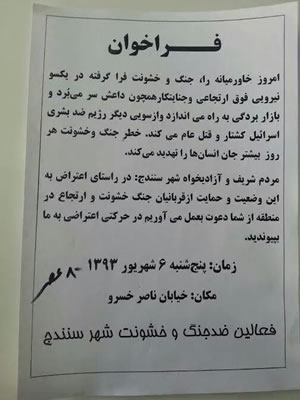 فراخوان
امروز خاورمیانه را، جنگ و خشونت فرا گرفته در یکسو
نیرویی فوق ارتجاعی وجنایتکارهمچون داعش سر می‌بُرد و
بازار بردگی به راه می اندازد وازسویی دیگر رژیم ضد بشری
اسرائیل کشتار و قتل عام می کند. خطر جنگ وخشونت هر
روز بیشتر جان انسان‌ها را تهدید می‌کند.
مردم شریف و آزادیخواه شهر سنندج: در راستای اعتراض به
این وضعیت و حمایت ازقربانیان جنگ خشونت و ارتجاع در
منطقه از شما دعوت بعمل می آوریم در حرکتی اعتراضی به ما
بپیوندید.
زمان: پنج‌شنبه ۶ شهریور ۱۳۹۳ - ۸ عصر
مکان: خیابان ناصر خسرو
فعالین ضدجنگ و خشونت شهر سنندج